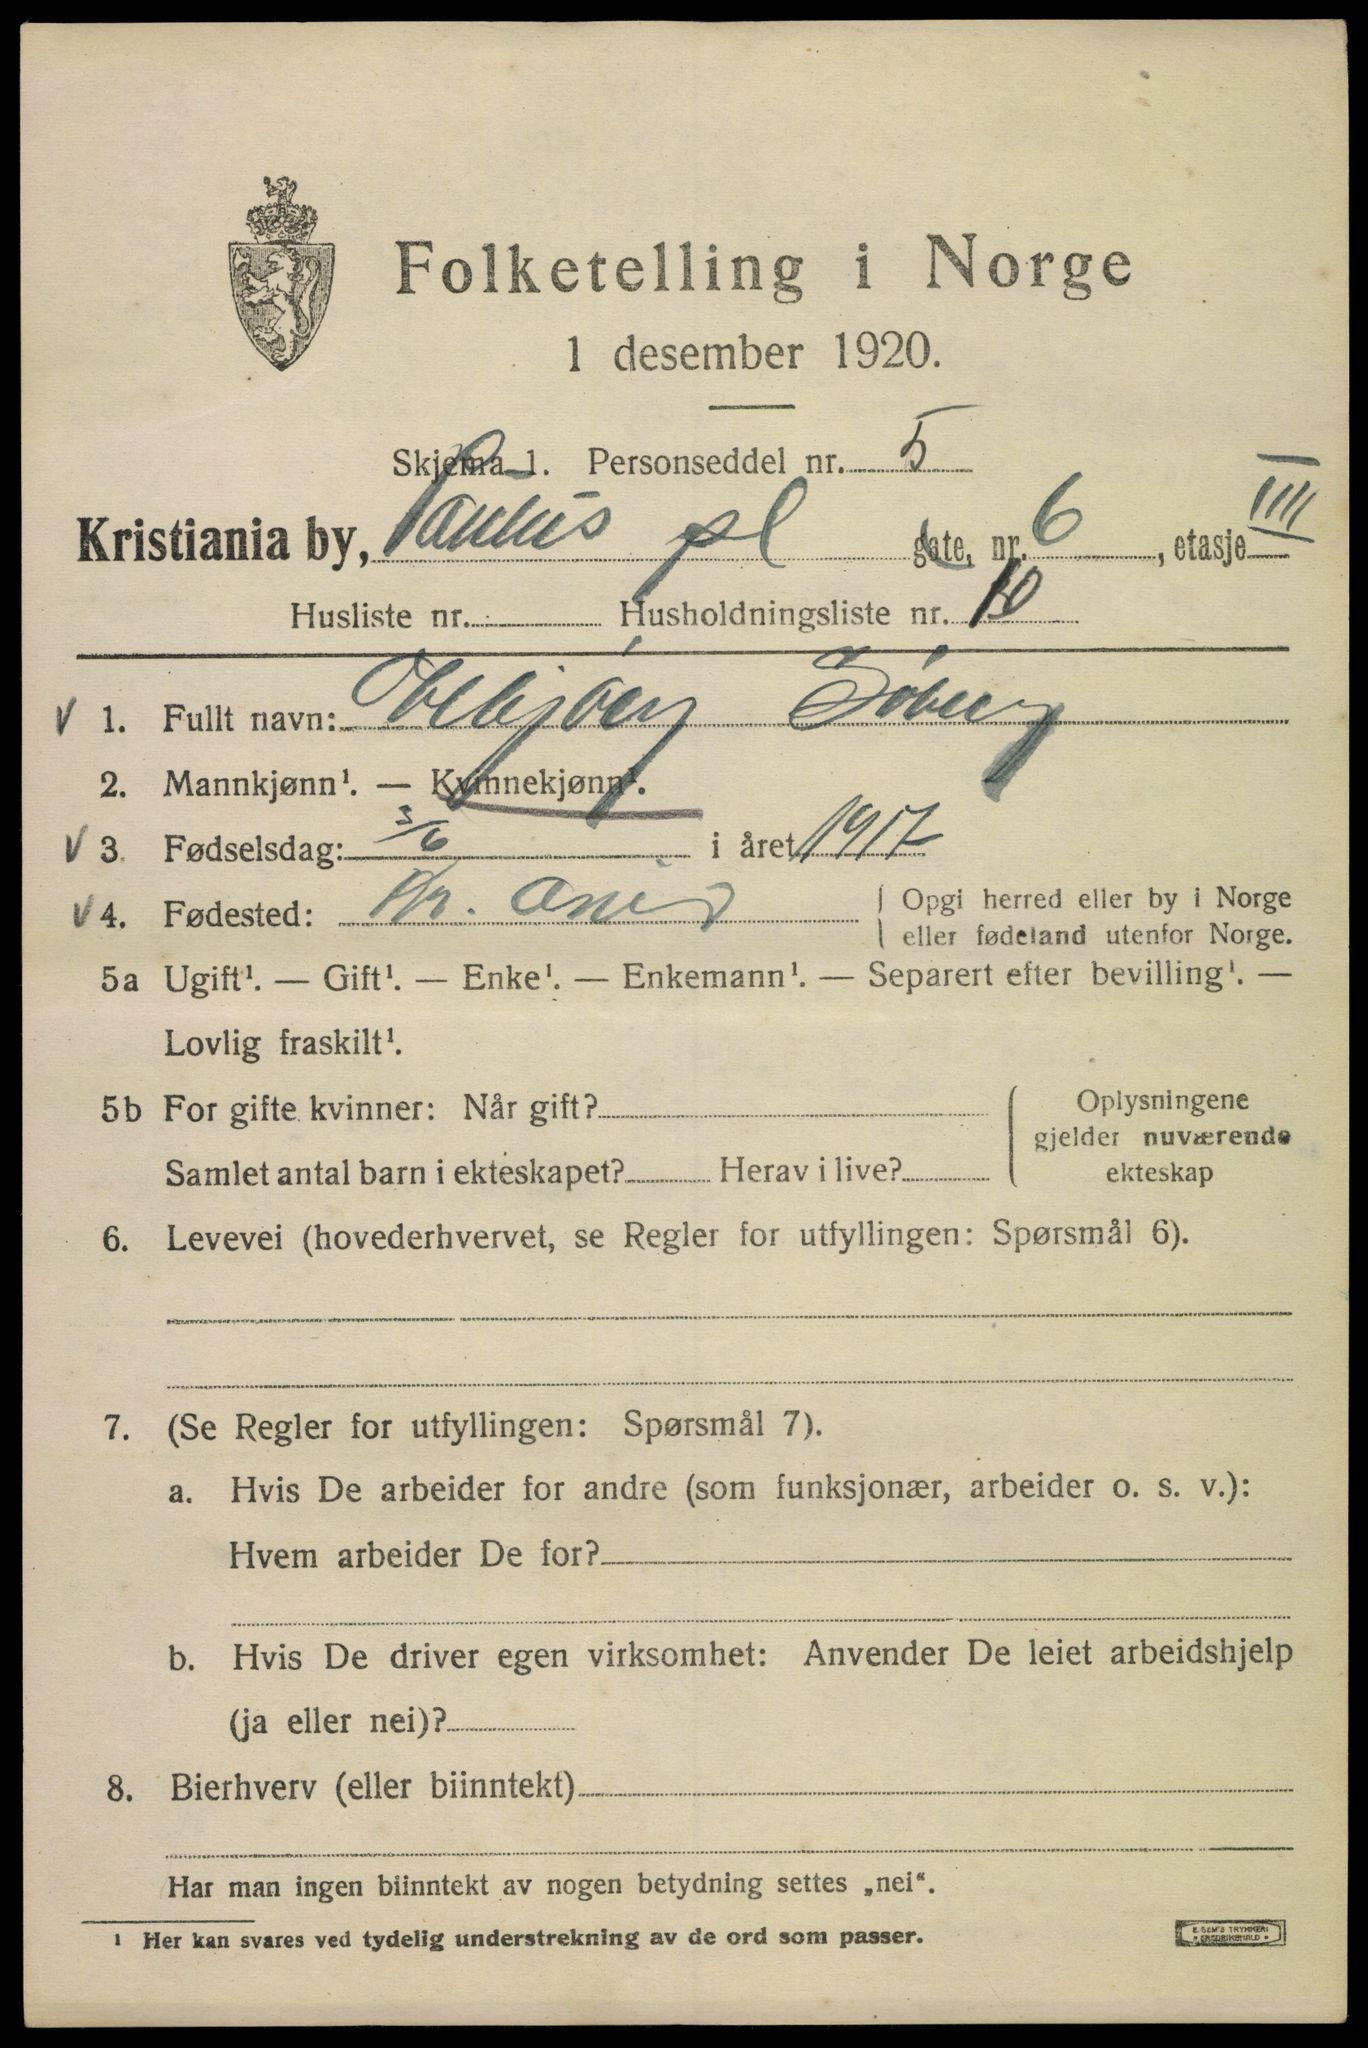 Folketelling i Norge
1 desember 1920.
Skjema 1. Personseddel nr. 5
Kristiania by, Paulus pl gate, nr. 6, etasje IIII
Husliste nr. Husholdningsliste nr. 10
1. Fullt navn: Søberg
2. Mannkjønn¹. — Kvinnekjønn¹.
3. Fødselsdag: 3/6 i året 1917
4. Fødested: Kr. ania { Opgi herred eller by i Norge
eller fødeland utenfor Norge.
5a Ugift¹. — Gift¹. — Enke¹. — Enkemann¹. — Separert efter bevilling¹. —
Lovlig fraskilt¹.
5b For gifte kvinner: Når gift? { Oplysningene
gjelder nuværende
Samlet antal barn i ekteskapet? Herav i live? ekteskap
6. Levevei (hovederhvervet, se Regler for utfyllingen: Spørsmål 6).
7. (Se Regler for utfyllingen: Spørsmål 7).
a. Hvis De arbeider for andre (som funksjonær, arbeider o. s. v.):
Hvem arbeider De for?
b. Hvis De driver egen virksomhet: Anvender De leiet arbeidshjelp
(ja eller nei)?
8. Bierhverv (eller biinntekt)
Har man ingen biinntekt av nogen betydning settes „nei“.
¹ Her kan svares ved tydelig understrekning av de ord som passer.
E. SEM'S TRYKKERI
• FREDRIKSHALD •